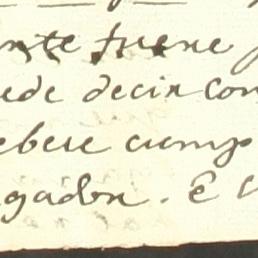 nte fuere
ede decir con
ebere cump
gador. E